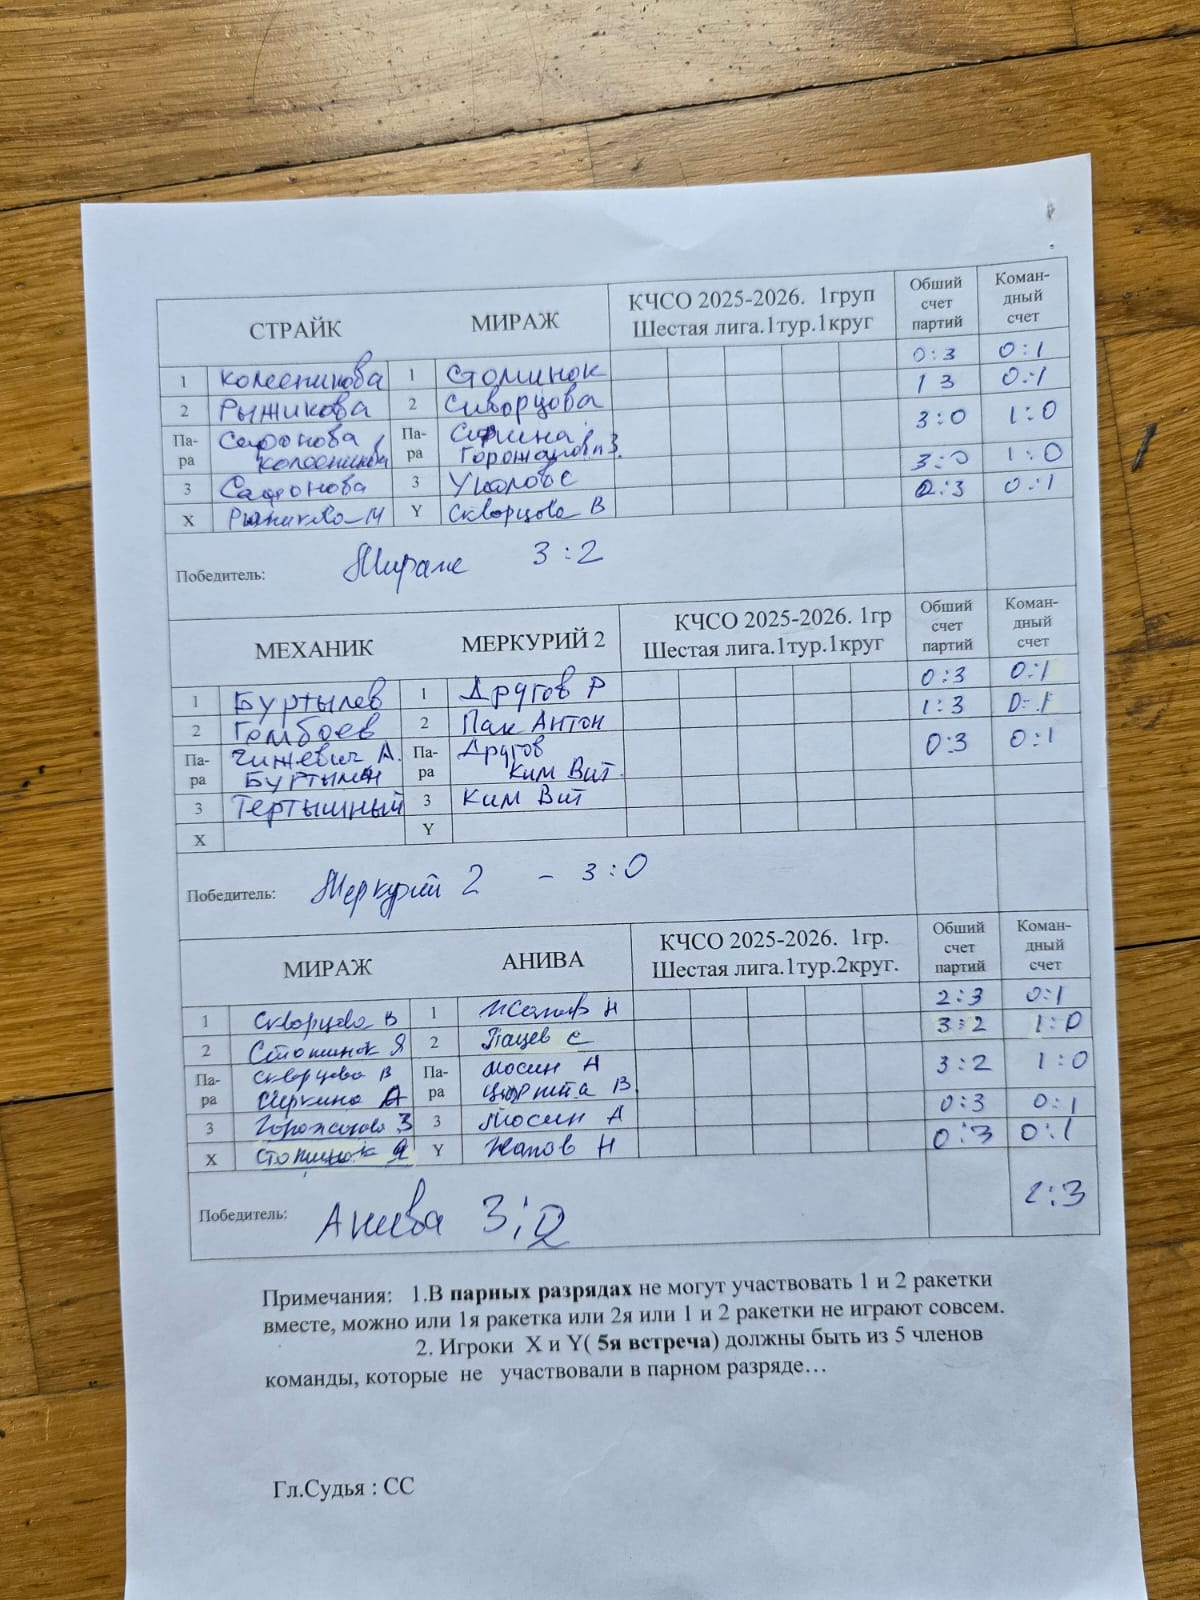 СТРАЙК МИРАЖ КЧСО 2025-2026. 1груп Обший Коман-
Шестая лига.1тур.1круг счет дный
партий счет
1 Колесникова 1 Стоминок 0:3 0:1
2 Рыжикова 2 Скворцова 1 3 0:1
Па- Сафонова Па- 3:0 1:0
ра Колесникова ра
3 Сафонова 3 3:0 1:0
X Y Скворцова В 2:3 0:1
Победитель: Мираж 3:2
МЕХАНИК МЕРКУРИЙ 2 КЧСО 2025-2026. 1гр Обший Коман-
Шестая лига.1тур.1круг счет дный
партий счет
1 Буртылев 1 Другов Р 0:3 0:1
2 Гомбоев 2 Пак Антон 1:3 0:1
Па- Чижевич А. Па- Другов 0:3 0:1
ра ра Ким Вит.
3 Тертышный 3 Ким Вит
X Y
Победитель: Меркурий 2 - 3:0
МИРАЖ АНИВА КЧСО 2025-2026. 1гр. Обший Коман-
Шестая лига.1тур.2круг. счет дный
партий счет
1 Скворцова В 1 2:3 0:1
2 Стоминок Я 2 Пацев С 3:2 1:0
Па- Скворцова В Па- Мосин А 3:2 1:0
ра ра
3 3 Мосин А 0:3 0:1
X Стоминок Я Y 0:3 0:1
Победитель: Анива 3:2 2:3
Примечания: 1.В парных разрядах не могут участвовать 1 и 2 ракетки
вместе, можно или 1я ракетка или 2я или 1 и 2 ракетки не играют совсем.
2. Игроки X и Y( 5я встреча) должны быть из 5 членов
команды, которые не участвовали в парном разряде…
Гл.Судья : СС